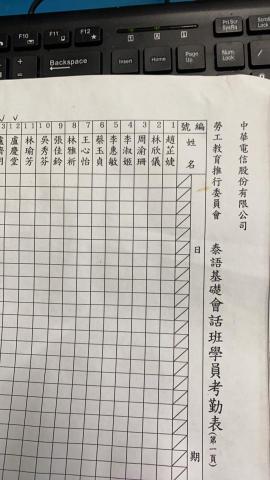 F10
F11
F12
PrtScr
SysRq
Scroll
Lock
Backspace
Insert
Home
Page
Up
Num
Lock
中華電信股份有限公司
勞工教育推行委員會
泰語基礎會話班學員考勤表(第一頁)
編號 姓名 日期
1 趙芷婕
2 林欣儀
3 周渝珊
4 李淑姬
5 李惠敏
6 蔡玉貞
7 王心怡
8 林雅祈
9 張佳鈴
10 吳秀芬
11 林瑜芳
12 盧慶堂